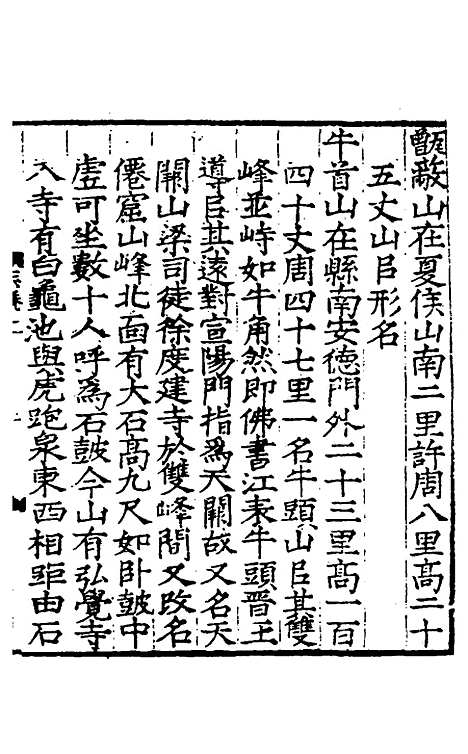 甑蔽山在夏侯山南二里許周八里高二十
五丈山㠯形名
牛首山在縣南安德門外二十三里高一百
四十丈周四十七里一名牛頭山㠯其雙
峰並峙如牛角然即佛書江表牛頭晉王
導㠯其遠對宣陽門指爲天闕故又名天
闕山梁司徒徐度建寺於雙峰間又改名
僊窟山峰北面有大石高九尺如卧鼓中
虗可坐數十人呼爲石鼓今山有弘覺寺
入寺有白龜池與虎跑泉東西相距由石